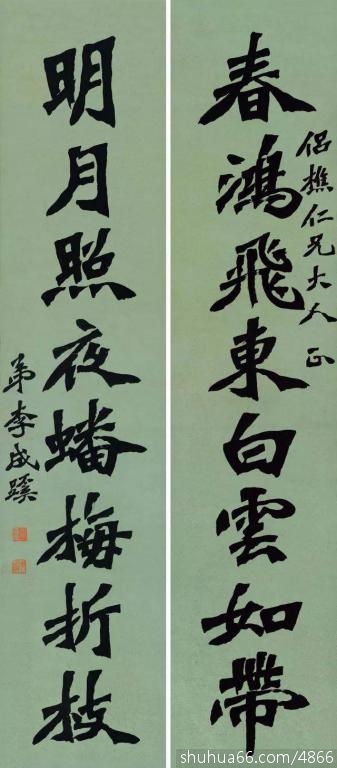 侣樵仁兄大人正
春鴻飛東白雲如帶
明月照夜蟠梅折枝
弟李成蹊
shuhua66.com/4866